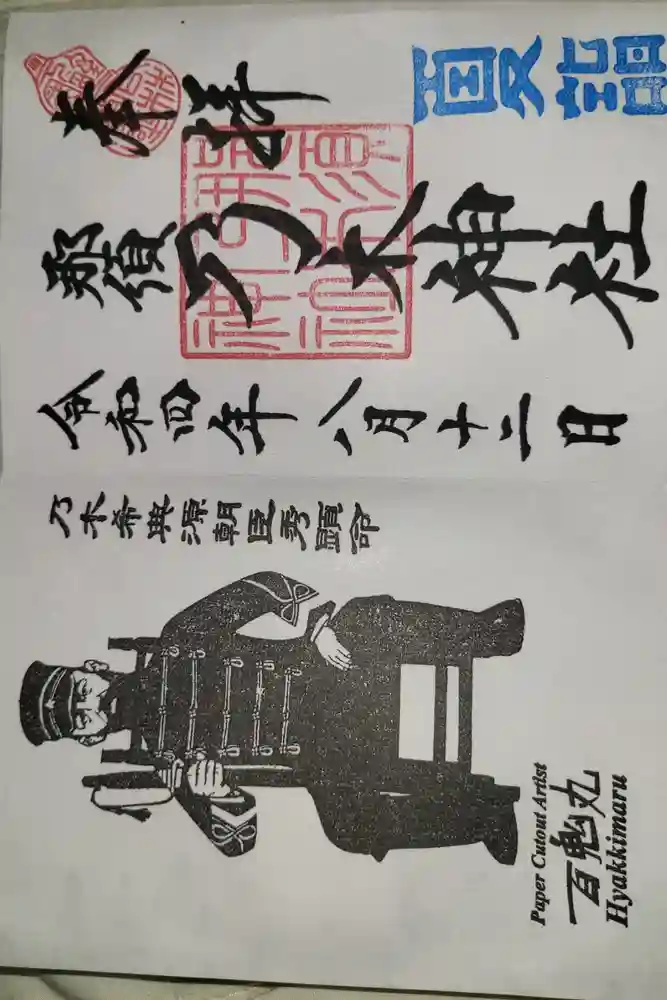 夏詣
奉拝
那須乃木神社
令和四年八月十二日
乃木希典源朝臣秀顕命
Paper Cutout Artist
百鬼丸
Hyakkimaru